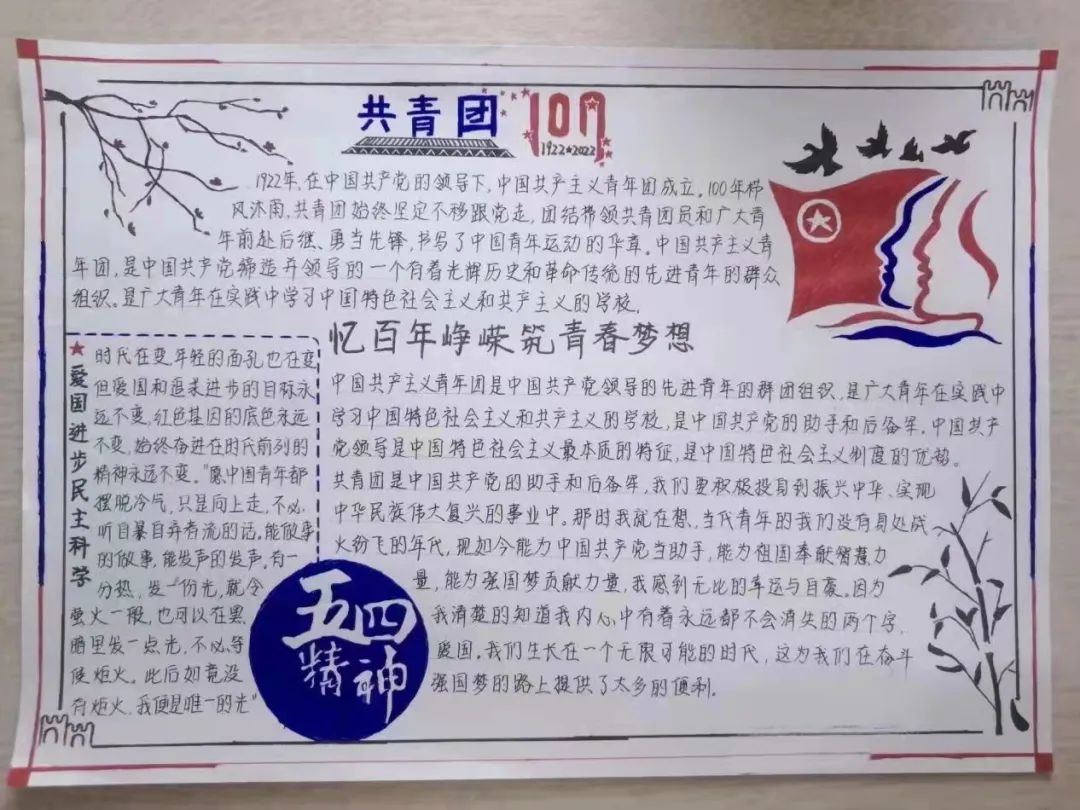 共青团 100
1922★2022
1922年,在中国共产党的领导下,中国共产主义青年团成立。100年栉
风沐雨,共青团始终坚定不移跟党走,团结带领共青团员和广大青
年前赴后继、勇当先锋,书写了中国青年运动的华章。中国共产主义青
年团,是中国共产党缔造并领导的一个有着光辉历史和革命传统的先进青年的群众
组织。是广大青年在实践中学习中国特色社会主义和共产主义的学校。
忆百年峥嵘筑青春梦想
★爱国进步民主科学
时代在变,年轻的面孔也在变
但爱国和追求进步的目标永
远不变,红色基因的底色永远
不变,始终奋进在时代前列的
精神永远不变。"愿中国青年都
摆脱冷气,只是向上走,不必
听自暴自弃者流的话。能做事
的做事,能发声的发声。有一
分热,发一份光,就令
萤火一般,也可以在黑
暗里发一点光,不必等
候炬火。此后如竟没
有炬火,我便是唯一的光"
五四
精神
中国共产主义青年团是中国共产党领导的先进青年的群团组织,是广大青年在实践中
学习中国特色社会主义和共产主义的学校,是中国共产党的助手和后备军。中国共产
党领导是中国特色社会主义最本质的特征,是中国特色社会主义制度的优势。
共青团是中国共产党的助手和后备军,我们要积极投身到振兴中华、实现
中华民族伟大复兴的事业中。那时我就在想,当代青年的我们没有身处战
火纷飞的年代,现如今能为中国共产党当助手,能为祖国奉献智慧力
量,能为强国梦贡献力量,我感到无比的幸运与自豪。因为
我清楚的知道我内心中有着永远都不会消失的两个字,
爱国。我们生长在一个无限可能的时代,这为我们在奋斗
强国梦的路上提供了太多的便利。